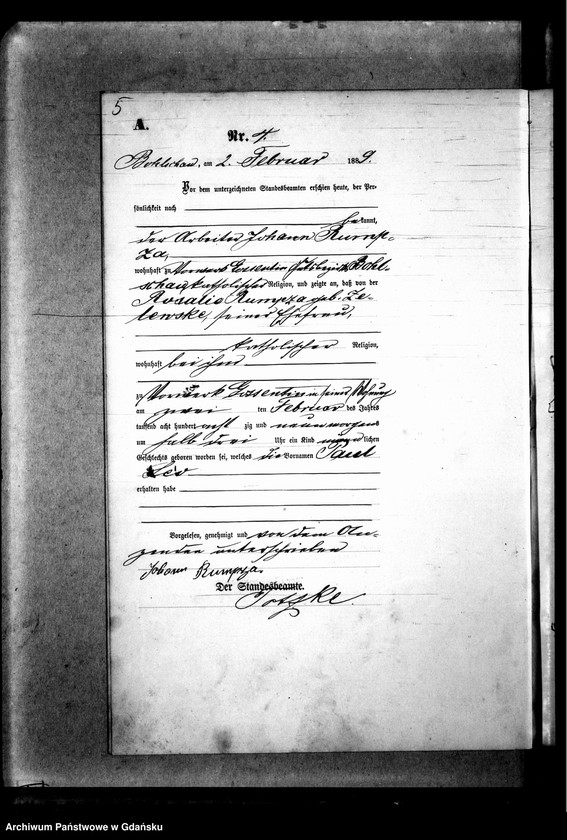 5
A.
Nr. 4.
Bohlschau, am 2. Februar 1889.
Vor dem unterzeichneten Standesbeamten erschien heute, der Per-
sönlichkeit nach
bekannt,
der Arbeiter Johann Rump-
za,
wohnhaft zu Vorwerk Gossentin Gutsbezirk Bohl-
schau katholischer Religion, und zeigte an, daß von der
Rosalie Rumpza geb. Ze-
lewske, seiner Ehefrau,
katholischer Religion,
wohnhaft bei ihm
zu Vorwerk Gossentin in seiner Wohnung
am zwei ten Februar des Jahres
tausend acht hundert acht zig und neun morgens
um halb drei Uhr ein Kind männlichen
Geschlechts geboren worden sei, welches die Vornamen Paul
Leo
erhalten habe
Vorgelesen, genehmigt und von dem An-
zeigenden unterschrieben
Johann Rumpza.
Der Standesbeamte.
Archiwum Państwowe w Gdańsku